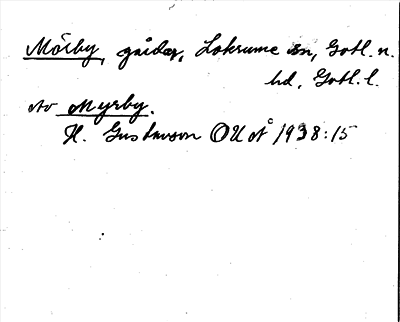 Mörby, gårdar, Lokrume sn, Gotl. n.
hd, Gotl. l.
Av Myrby.
H. Gustavson OUÅ 1938:15